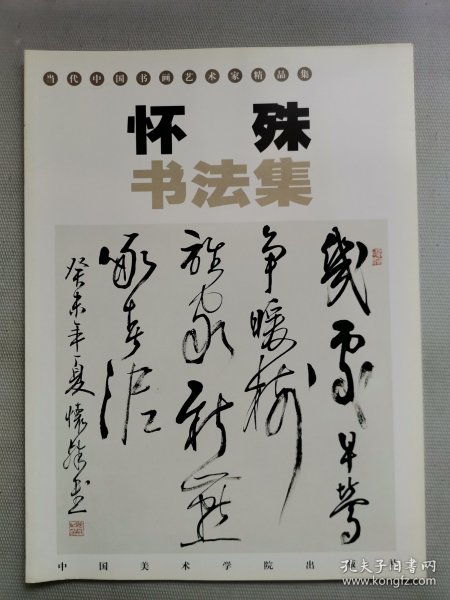 当代中国书画艺术家精品集
怀殊
书法集
几处早莺
争暖树
谁家新燕
啄春泥
癸未年夏怀殊书
中国美术学院出版社
孔夫子旧书网
www.kongfz.com